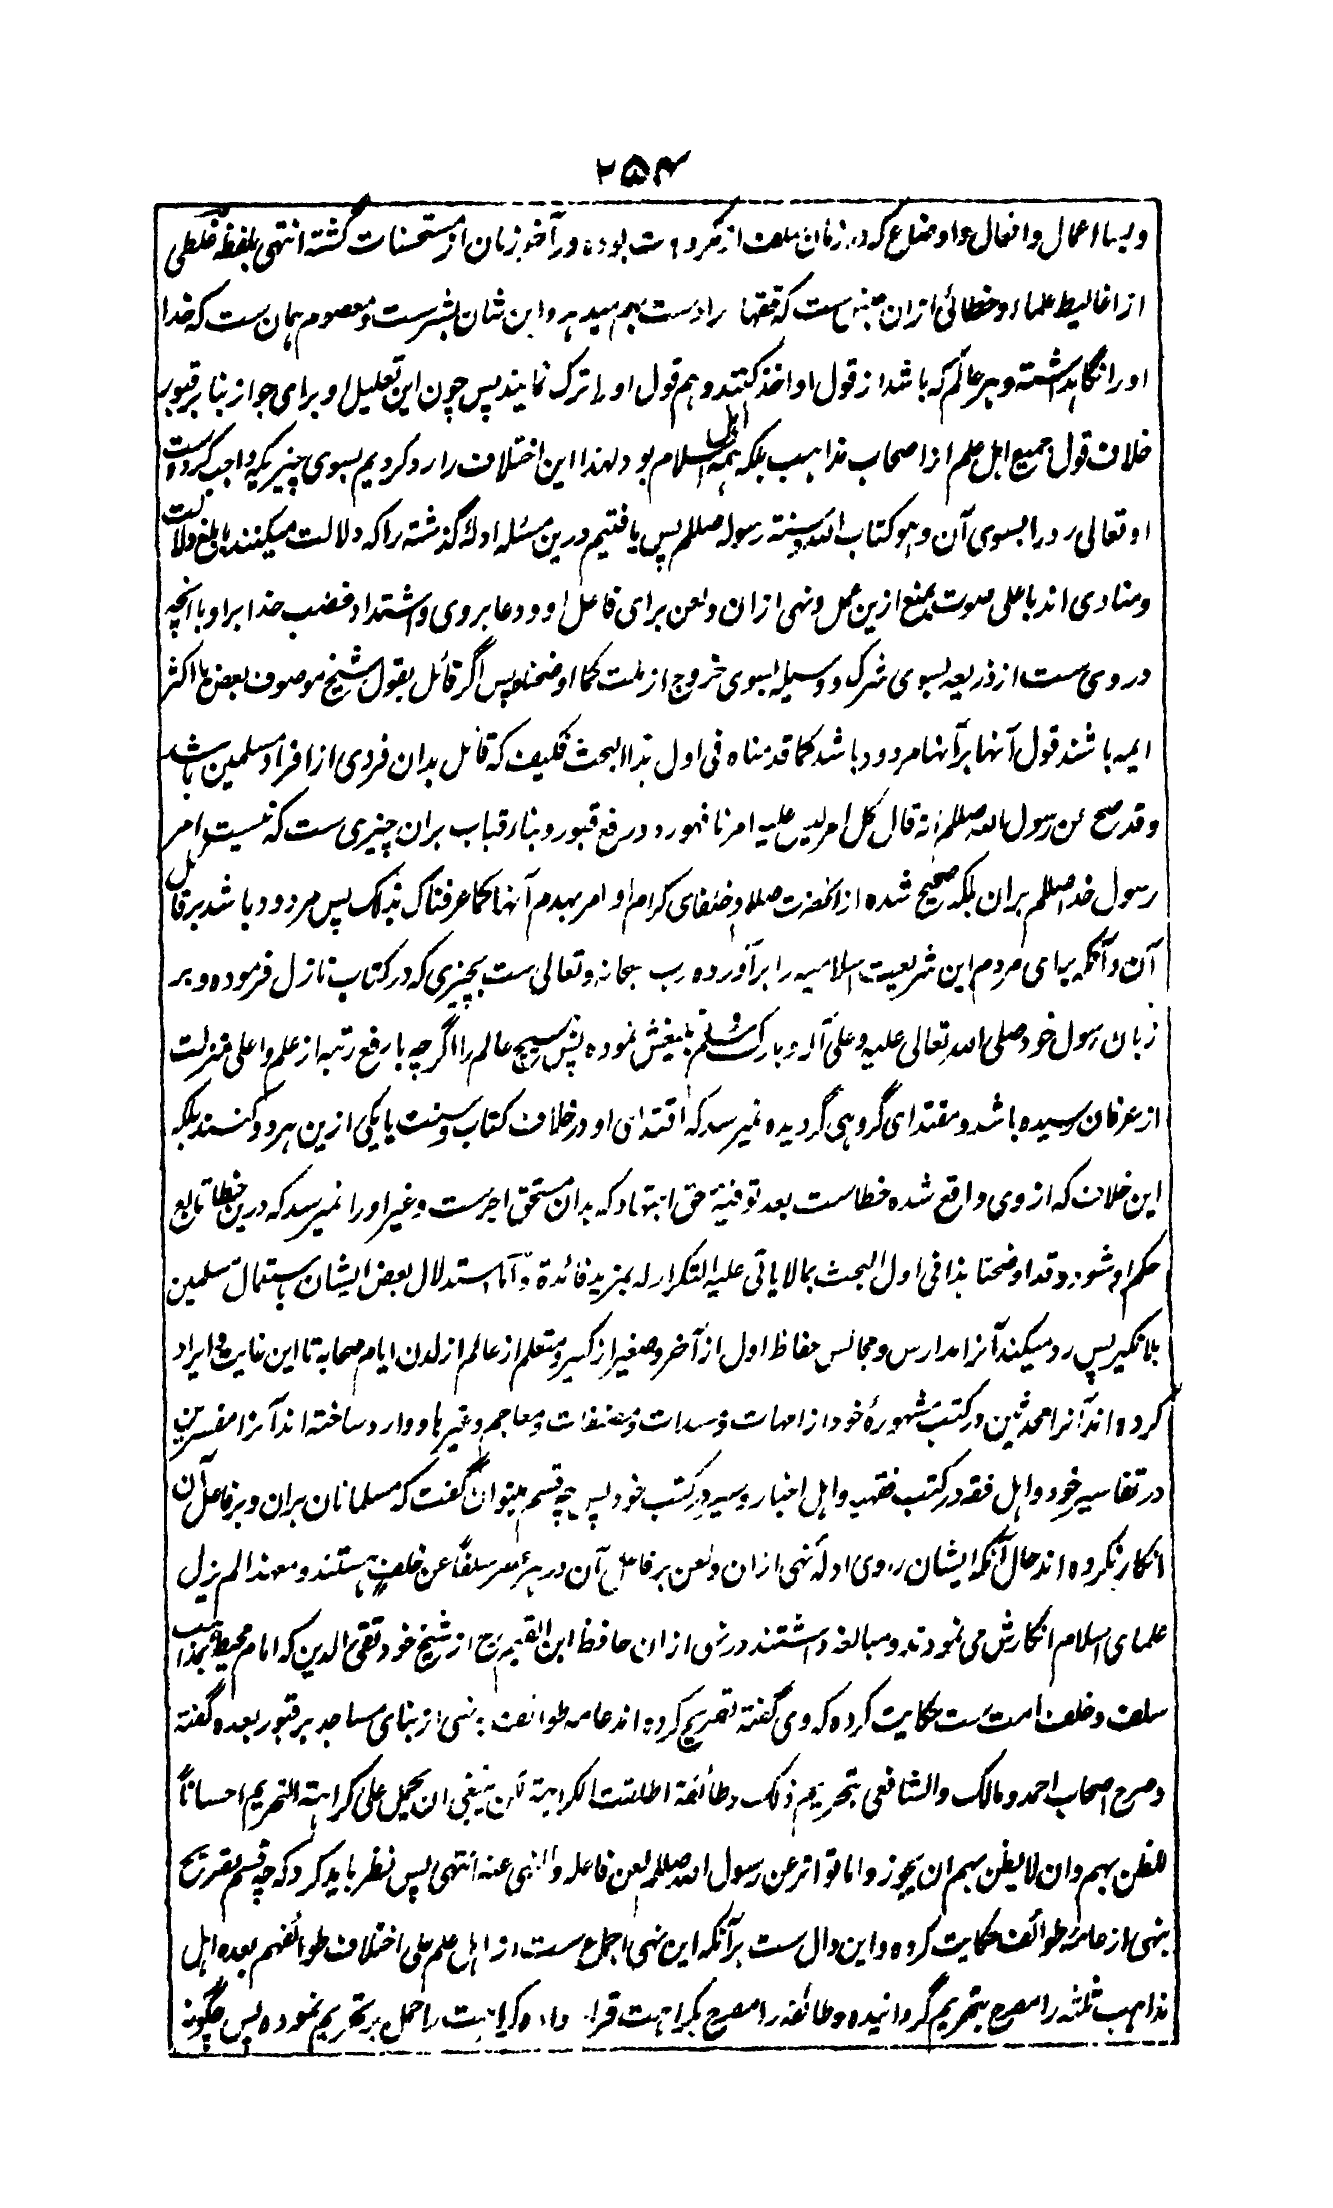 ۲۵۴
وبسا اعمال وافعال واوضاع که در زمان سلف از مکروهات بوده ودر آخر زمان از مستحسنات گشته انتهی بلفظه غلطی
از اغالیط علماء وخطائی ازان جنس ست که فقها را دست بهم میدهد واین شان بشرست ومعصوم همان ست که خدا
او را نگاهداشته وهر عالم که باشد از قول او اخذ کنند وهم قول او را ترک نمایند پس چون این تعلیل او برای جواز بنا بر قبور
خلاف قول جمیع اهل علم از اصحاب مذاهب بلکه همه اهل اسلام بود لهذا این اختلاف را رد کردیم بسوی چیزیکه واجب کرده است
او تعالی رد را بسوی آن وهو کتاب الله وسنة رسوله صللم پس یافتیم درین مسئله ادلهٔ گذشته را که دلالت میکنند بابلغ دلالت
ومنادی اند باعلی صوت بمنع ازین عمل ونهی ازان ولعن برای فاعل او ودعا بر وی واشتداد غضب خدا بر او با آنچه
در وی ست از ذریعه بسوی شرک ووسیله بسوی خروج از ملت کما اوضحناه پس اگر قائل بقول شیخ موصوف بعض یا اکثر
ایمه باشند قول آنها بر آنها مردود باشد کما قدمناه فی اول هذا البحث فکیف که قائل بدان فردی از افراد مسلمین باشد
وقد صح عن رسول الله صللم انه قال کل امر لیس علیه امرنا فهو رد ورفع قبور وبناء قباب بران چیزی ست که نیست امر
رسول خدا صللم بران بلکه صحیح شده از آنحضرت صللم وخلفای کرام او امر بهدم آنها کما عرفناک بذلک پس مردود باشد بر قائل
آن وآنکه برای مردم این شریعت اسلامیه را برآورده رب سبحانه وتعالی ست بچیزی که در کتاب نازل فرموده وبر
زبان رسول خود صلی الله تعالی علیه وعلی آله وبارک وسلم تبلیغش نموده پس هیچ عالم را اگرچه بارفع رتبه از علم واعلی منزلت
از عرفان رسیده باشد ومقتدای گروهی گردیده نمیرسد که اقتدای او در خلاف کتاب وسنت یا یکی ازین هر دو کنند بلکه
این خلاف که از وی واقع شده خطاست بعد توفیهٔ حق اجتهاد که بدان مستحق اجرست وغیر او را نمیرسد که درین خطا تابع
حکم او شود وقد اوضحنا هذا فی اول البحث بما لا یاتی علیه التکرار له بمزید فائدة واما استدلال بعض ایشان باستعمال مسلمین
بلا نکیر پس رد میکند آنرا مدارس ومجالس حفاظ اول از آخر وصغیر از کبیر ومتعلم از عالم از لدن ایام صحابه تا این غایت وایراد
کرده اند آنرا محدثین در کتب مشهورهٔ خود از امهات ومسندات ومصنفات ومعاجم وغیرها ووارد ساخته اند آنرا مفسرین
در تفاسیر خود واهل فقه در کتب فقهیه واهل اخبار وسیر در کتب خود پس چه قسم میتوان گفت که مسلمانان بران وبر فاعل آن
انکار نکرده اند حال آنکه ایشان راوی ادلهٔ نهی ازان ولعن بر فاعل آن در هر عصر سلفا عن خلف هستند ومعهذا لم یزل
علمای اسلام انکارش می نمودند ومبالغه داشتند در نهی ازان حافظ ابن القیم رح از شیخ خود تقی الدین که امام محیط بمذاهب
سلف وخلف امت ست حکایت کرده که وی گفته تصریح کرده اند عامه طوائف به نهی از بنای مساجد بر قبور بعده گفته
وصرح اصحاب احمد ومالک والشافعی بتحریم ذلک وطائفة اطلقت الکراهة لکن ینبغی ان یحمل علی کراهة التحریم احسانا
للظن بهم وان لا یظن بهم ان یجوزوا ما تواتر عن رسول الله صللم لعن فاعله والنهی عنه انتهی پس نظر باید کرد که چه قسم تصریح
بنهی از عامهٔ طوائف حکایت کرده واین دال ست بر آنکه این نهی اجماع ست از اهل علم علی اختلاف طوائفهم بعده اهل
مذاهب ثلثه را مصرح بتحریم گردانیده وطائفه را مصرح بکراهت قرار داده کراهت را حمل بر تحریم نموده پس چگونه